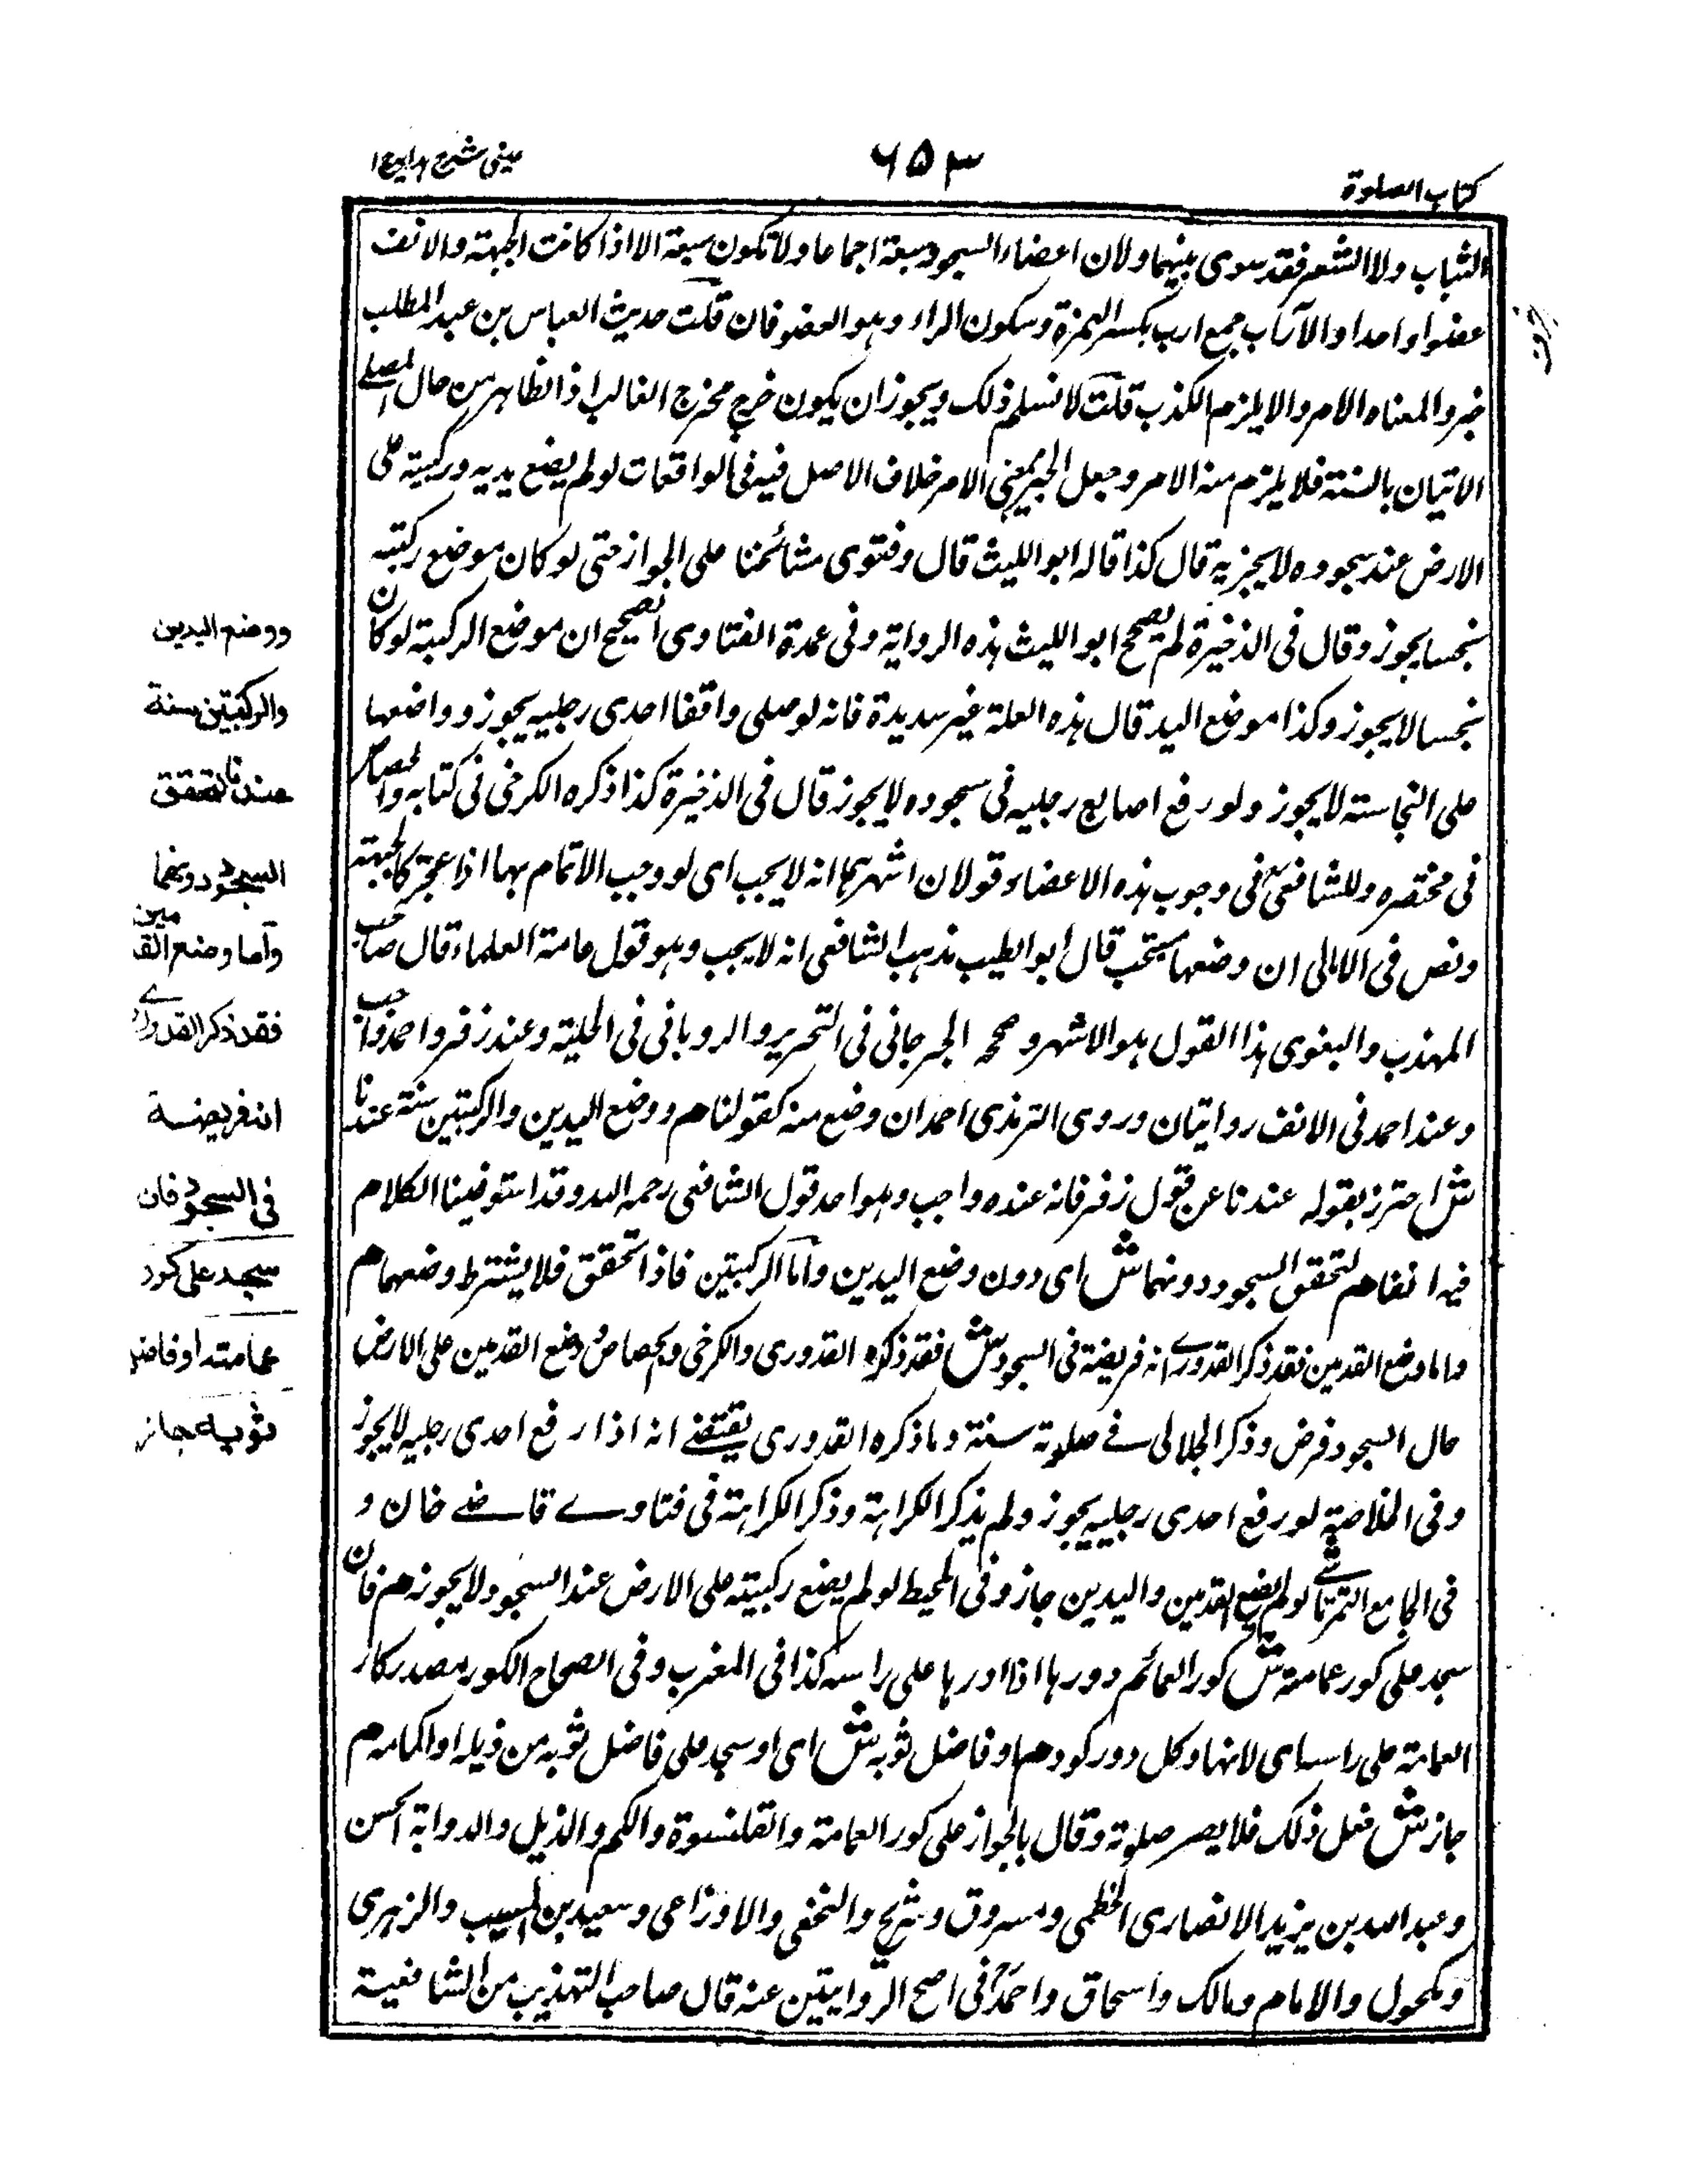 كتاب الصلوة
٦٥٣
عینی شرح هدایه ج ۱
الثياب ولا الشعر فقد سوى بينهما ولان اعضاء السجود سبعة اجماعا ولا تكون سبعة الا اذا كانت الجبهة والانف
عضوا واحدا والآراب جمع ارب بكسر الهمزة وسكون الراء وهو العضو فان قلت حديث العباس بن عبد المطلب
خبر والمعناه الامر والا يلزم الكذب قلت لا نسلم ذلك ويجوز ان يكون خرج مخرج الغالب اذ الظاهر من حال المصلے
الاتيان بالسنة فلا يلزم منه الامر وجعل الخبر بمعنى الامر خلاف الاصل فيه فى الواقعات لو لم يضع يديه وركبتيه على
الارض عند سجوده لا يجزيه قال كذا قاله ابو الليث قال وفتوى مشائخنا على الجواز حتى لو كان موضع ركبتيه
نجسا يجوز وقال فى الذخيرة لم يصحح ابو الليث هذه الرواية وفى عمدة الفتاوى الصحيح ان موضع الركبة لو كان
نجسا لا يجوز وكذا موضع اليد قال هذه العلة غير سديدة فانه لو صلى واقفا احدى رجليه يجوز وواضعها
على النجاسة لا يجوز ولو رفع اصابع رجليه فى سجوده لا يجوز قال فى الذخيرة كذا ذكره الكرخى فى كتابه والجصاص
فى مختصره وللشافعى فى وجوب هذه الاعضاء قولان اشهرهما انه لا يجب اى لو وجب الاتمام بها اذا عجز كالجبهة
ونص فى الامالى ان وضعها مستحب قال ابو الطيب مذهب الشافعى انه لا يجب وهو قول عامة العلماء قال صاحب
المهذب والبغوى هذا القول هو الاشهر وصححه الجرجانى فى التحرير والرويانى فى الحلية وعند زفر واحمد واجب
وعند احمد فى الانف روايتان وروى الترمذى احمد ان وضع سنة كقولنا هم ووضع اليدين والركبتين سنة عندنا
ش احترز بقوله عندنا عن قول زفر فانه عنده واجب وهو احد قول الشافعى رحمه الله وقد استوفينا الكلام
فيه انفا هم لتحقق السجود دونهما ش اى دون وضع اليدين واما الركبتين فاذا تحقق فلا يشترط وضعهما هم
واما وضع القدمين فقد ذكر القدورے انه فريضة فى السجود ش فقد ذكره القدورى والكرخى والجصاص وضع القدمين على الارض
حال السجود فرض وذكر الجلالى فے صلوته سنة وما ذكره القدورى يقتضے انه اذا رفع احدى رجليه لا يجوز
وفى الخلاصة لو رفع احدى رجليه يجوز ولم يذكر الكراهة وذكر الكراهة فى فتاوے قاضے خان و
فى الجامع التمرتاشے لو لم يضع القدمين واليدين جاز وفى المحيط لو لم يضع ركبتيه على الارض عند السجود لا يجوز هم فان
سجد على كور عمامته ش كور العمائم دورها اذا ادرها على راسه كذا فى المغرب وفى الصحاح الكور مصدر كار
العمامة على راسه اى لاثها وكل دور كور هم او فاضل ثوبه ش اى او سجد على فاضل ثوبه من ذيله او اكمامه هم
جاز ش فعل ذلك فلا يضر صلوته وقال بالجواز على كور العمامة والقلنسوة والكم والذيل والدوابة الحسن
وعبد الله بن يزيد الانصارى الخطمى ومسروق وشريح والنخعى والاوزاعى وسعيد بن المسيب والزهرى
ومكحول والامام ومالك واسحاق واحمد فى اصح الروايتين عنه قال صاحب التهذيب من الشافعية
ووضع اليدين
والركبتين سنة
عندنا لتحقق
السجود دونهما
وأما وضع القدمين
فقد ذكر القدورے
انه فريضة
فى السجود فان
سجد على كور
عمامته او فاضل
ثوبه جاز